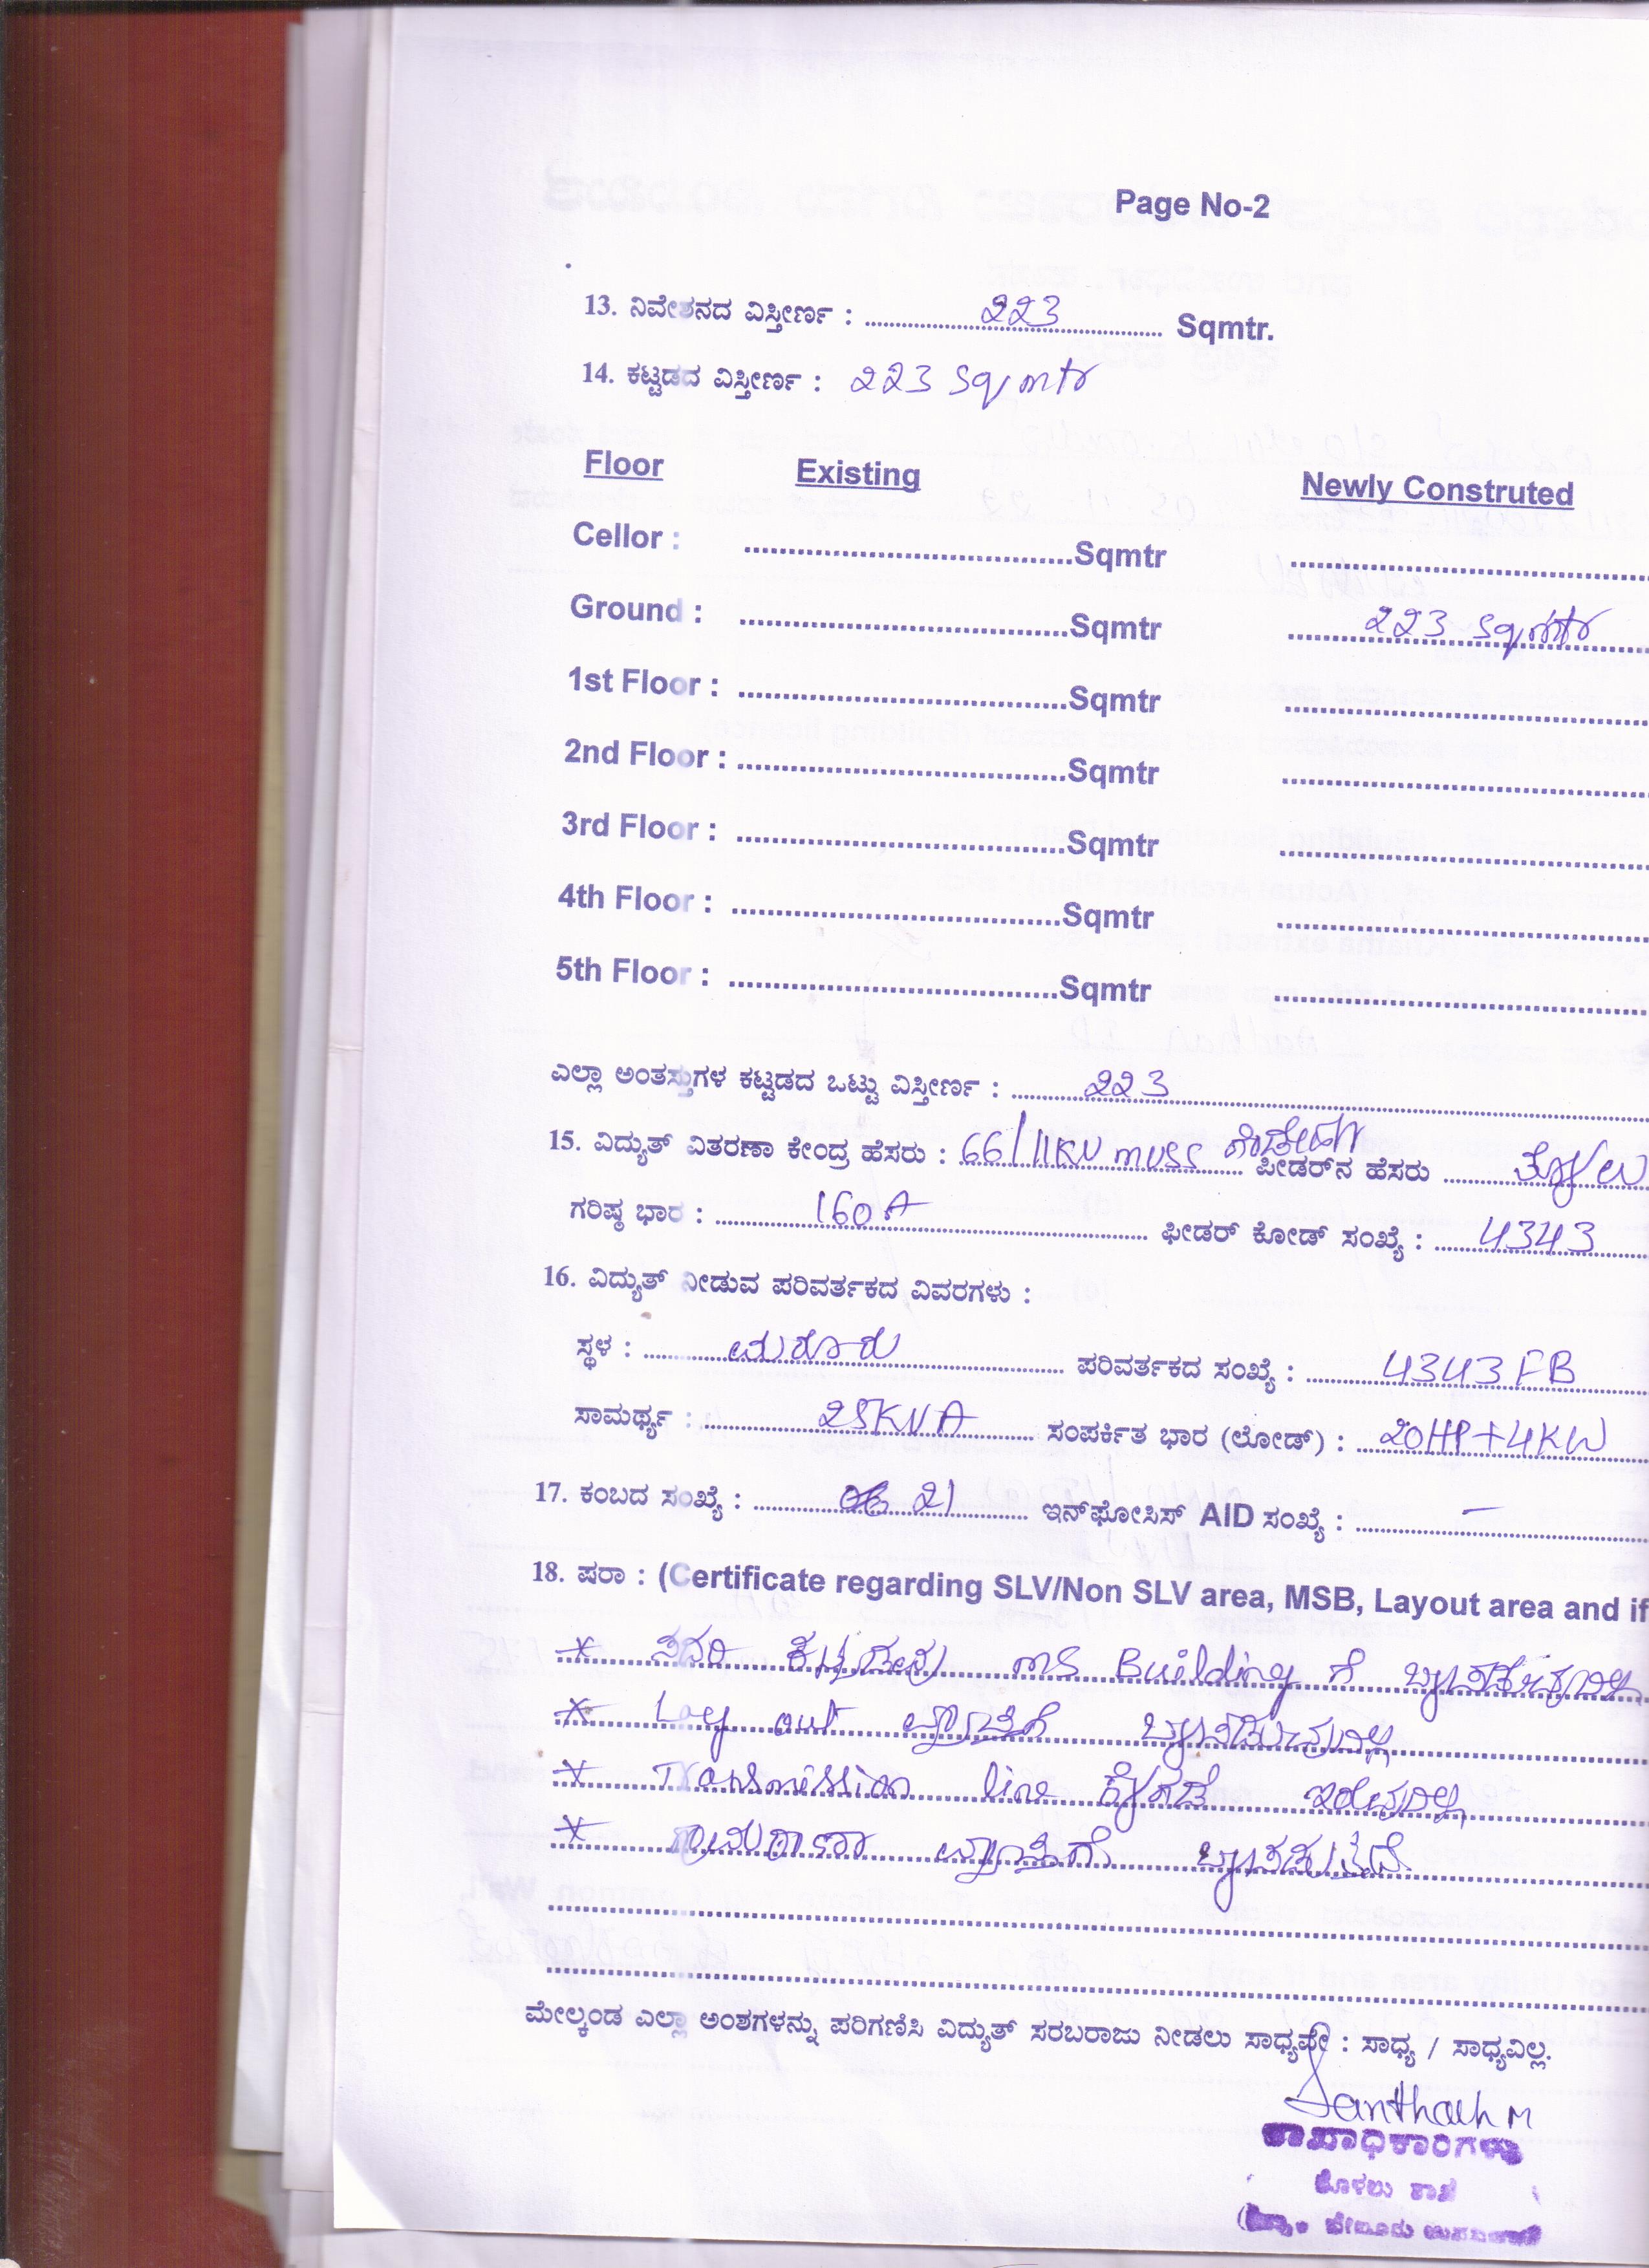 Page No-2
13. ನಿವೇಶನದ ವಿಸ್ತೀರ್ಣ : 223 Sqmtr.
14. ಕಟ್ಟಡದ ವಿಸ್ತೀರ್ಣ : 223 Sqmtr
Floor Existing Newly Construted
Cellor : Sqmtr
Ground : Sqmtr 223 Sqmtr
1st Floor : Sqmtr
2nd Floor : Sqmtr
3rd Floor : Sqmtr
4th Floor : Sqmtr
5th Floor : Sqmtr
ಎಲ್ಲಾ ಅಂತಸ್ತುಗಳ ಕಟ್ಟಡದ ಒಟ್ಟು ವಿಸ್ತೀರ್ಣ : 223
15. ವಿದ್ಯುತ್ ವಿತರಣಾ ಕೇಂದ್ರ ಹೆಸರು : 66/11KV MUSS ಪೀಡರ್‌ನ ಹೆಸರು
ಗರಿಷ್ಠ ಭಾರ : 160A ಫೀಡರ್ ಕೋಡ್ ಸಂಖ್ಯೆ : 4343
16. ವಿದ್ಯುತ್ ನೀಡುವ ಪರಿವರ್ತಕದ ವಿವರಗಳು :
ಸ್ಥಳ : ಪರಿವರ್ತಕದ ಸಂಖ್ಯೆ : 4343FB
ಸಾಮರ್ಥ್ಯ : 25KVA ಸಂಪರ್ಕಿತ ಭಾರ (ಲೋಡ್) : 20HP+4KW
17. ಕಂಬದ ಸಂಖ್ಯೆ : 21 ಇನ್‌ಫೋಸಿಸ್ AID ಸಂಖ್ಯೆ : -
18. ಷರಾ : (Certificate regarding SLV/Non SLV area, MSB, Layout area and if
* ಸದರಿ ಕಟ್ಟಡವು MS Building ಗೆ ಒಳಪಡುವುದಿಲ್ಲ
* Lay out ವ್ಯಾಪ್ತಿಗೆ ಒಳಪಡುವುದಿಲ್ಲ
* Transmission line ಕೆಳಗಡೆ ಇರುವುದಿಲ್ಲ
* ಗ್ರಾಮಠಾಣಾ ವ್ಯಾಪ್ತಿಗೆ ಒಳಪಡುತ್ತದೆ.
ಮೇಲ್ಕಂಡ ಎಲ್ಲಾ ಅಂಶಗಳನ್ನು ಪರಿಗಣಿಸಿ ವಿದ್ಯುತ್ ಸರಬರಾಜು ನೀಡಲು ಸಾಧ್ಯವೇ : ಸಾಧ್ಯ / ಸಾಧ್ಯವಿಲ್ಲ.
ಶಾಖಾಧಿಕಾರಿಗಳು